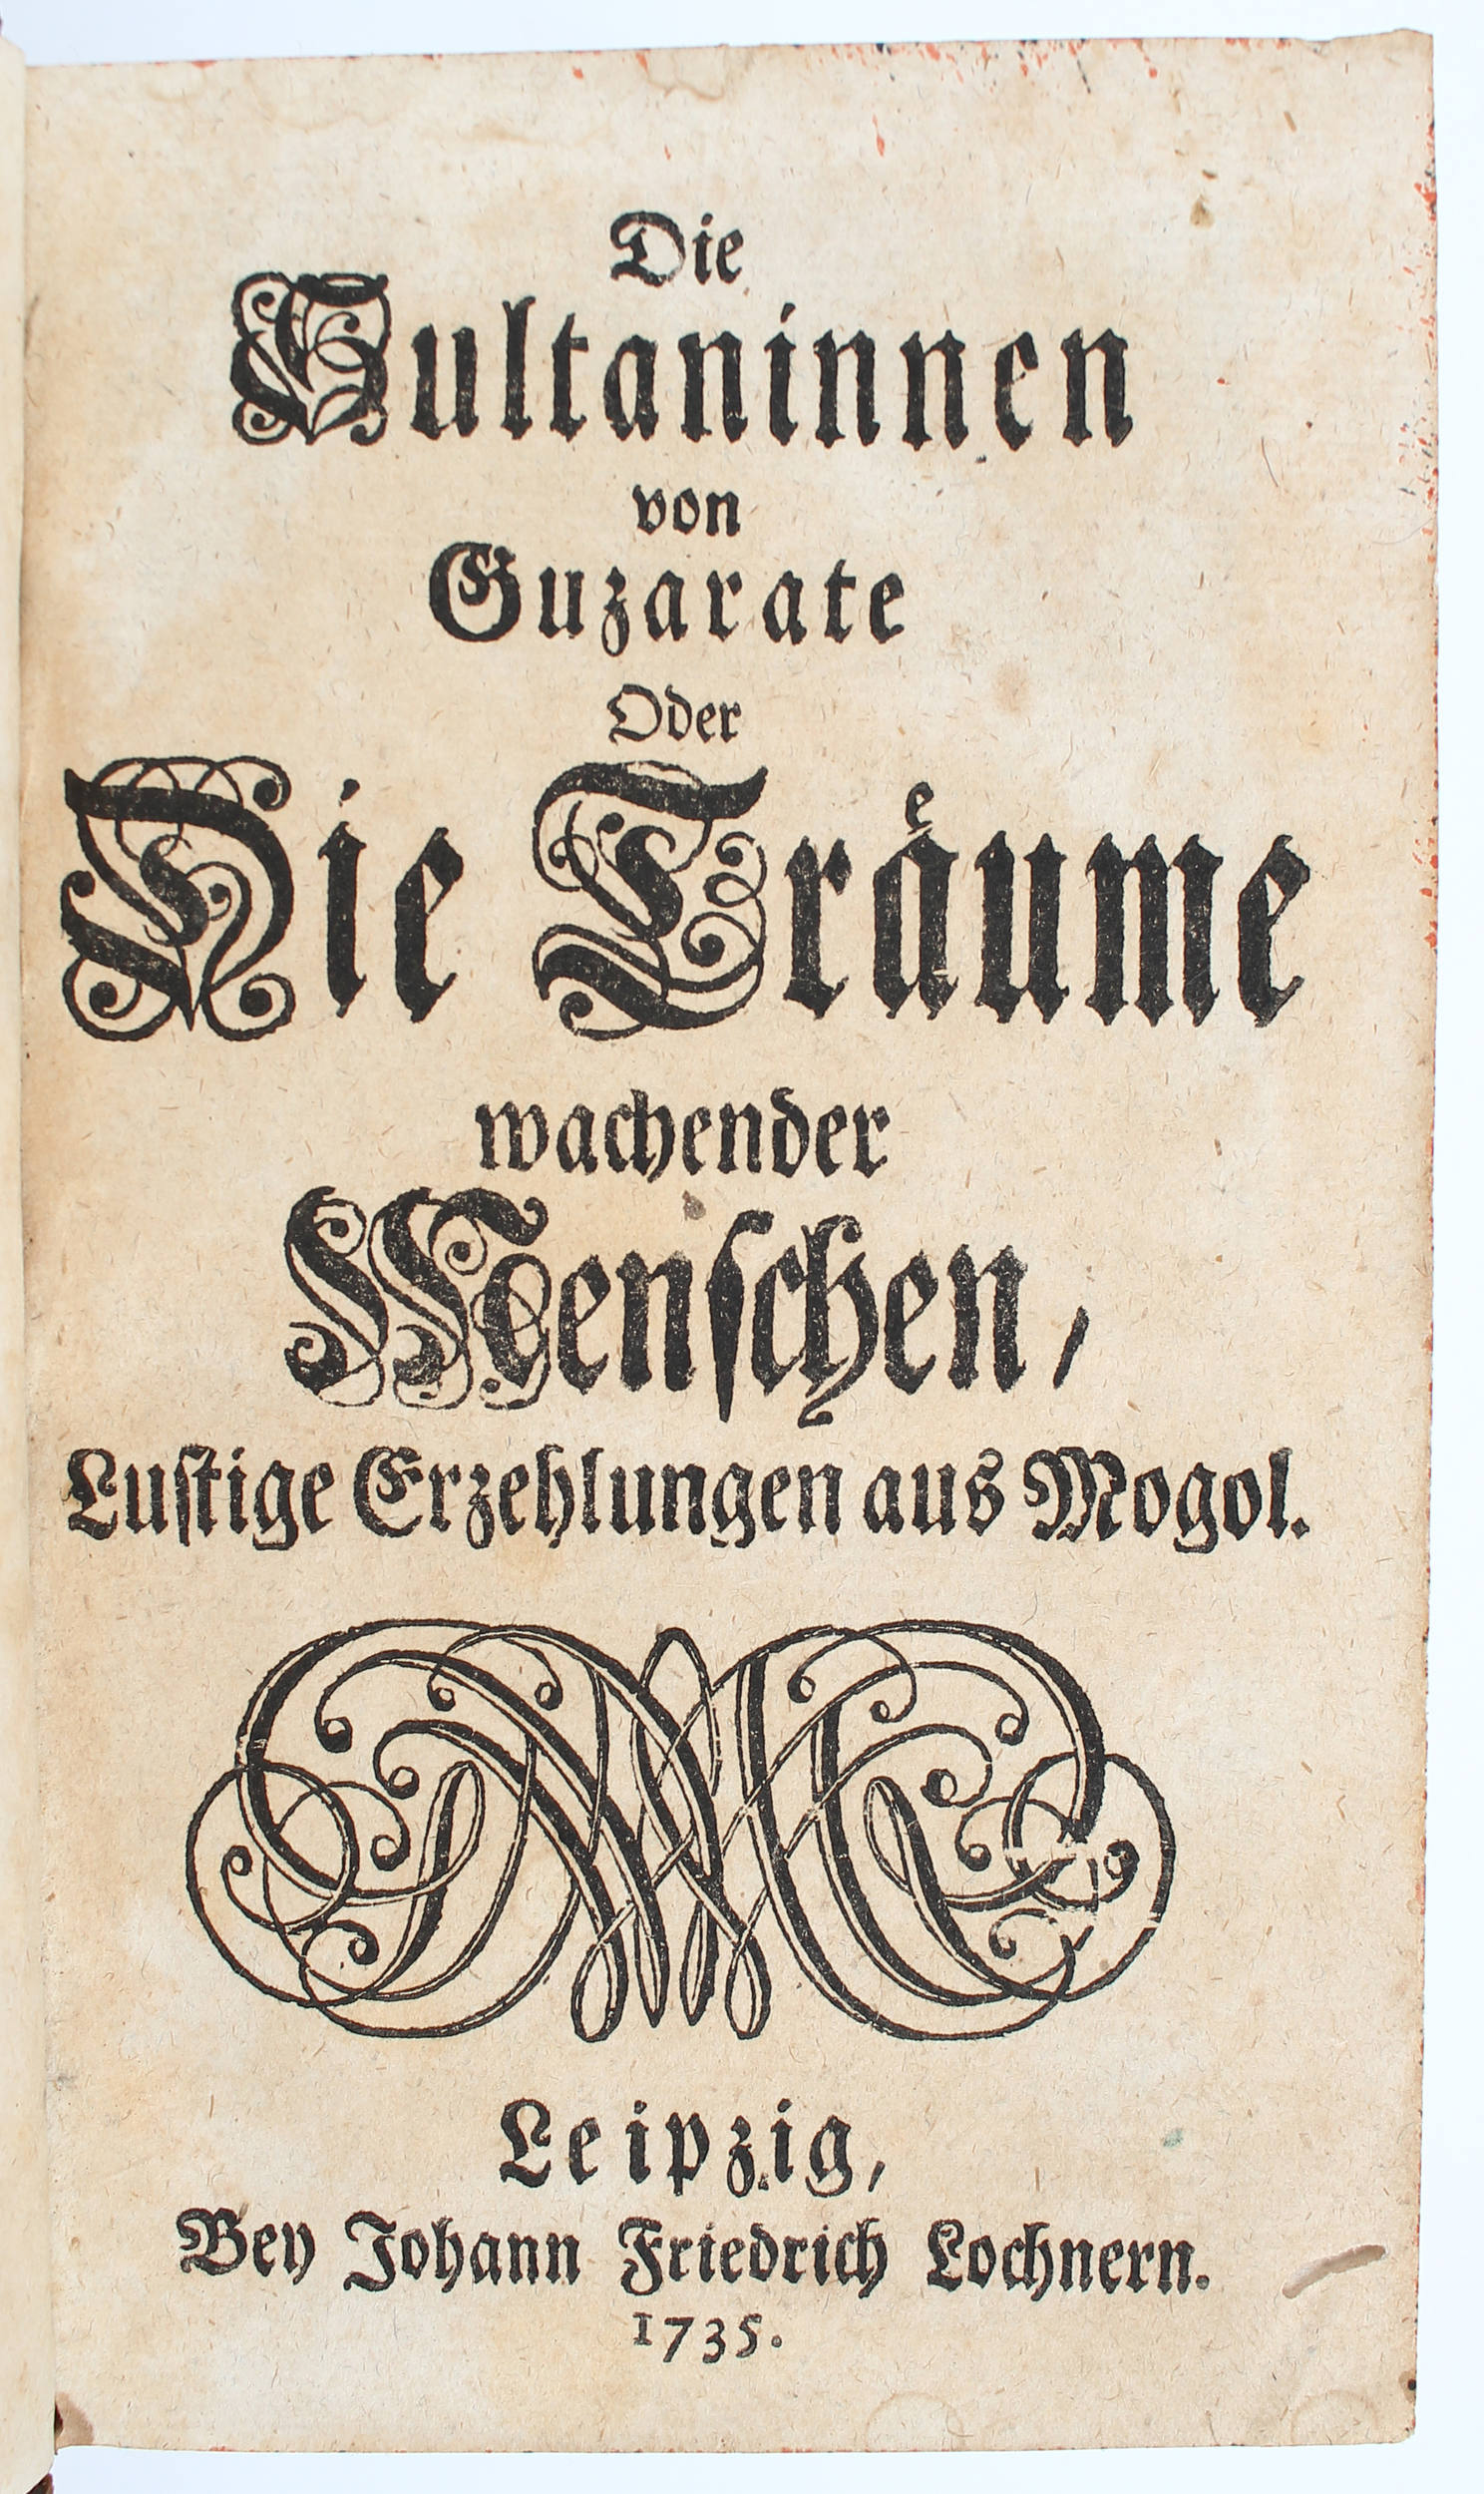 Die
Sultaninnen
von
Guzarate
Oder
Die Traͤume
wachender
Menſchen /
Luſtige Erzehlungen aus Mogol.
Leipzig,
Bey Johann Friedrich Lochnern.
1735.